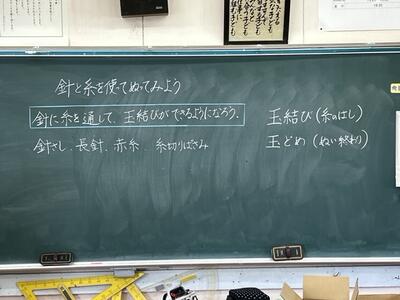 針と糸を使ってぬってみよう
針に糸を通して、玉結びができるようになろう。
針さし、長針、赤糸、糸切りばさみ
玉結び(糸のはし)
玉どめ(ぬい終わり)